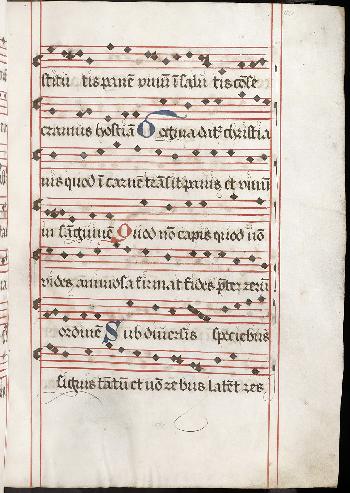 stituti panē vinū ī salu tis cōse
cramus hostiā Dogma dat᷑ christia
nis quod ī carnē trāsit panis et vinū
in sāguinē Quod nō capis quod nō
vides animosa firmat fides preter rerū
ordinē Sub diversis speciebus
signis tātū et nō rebus latēt res